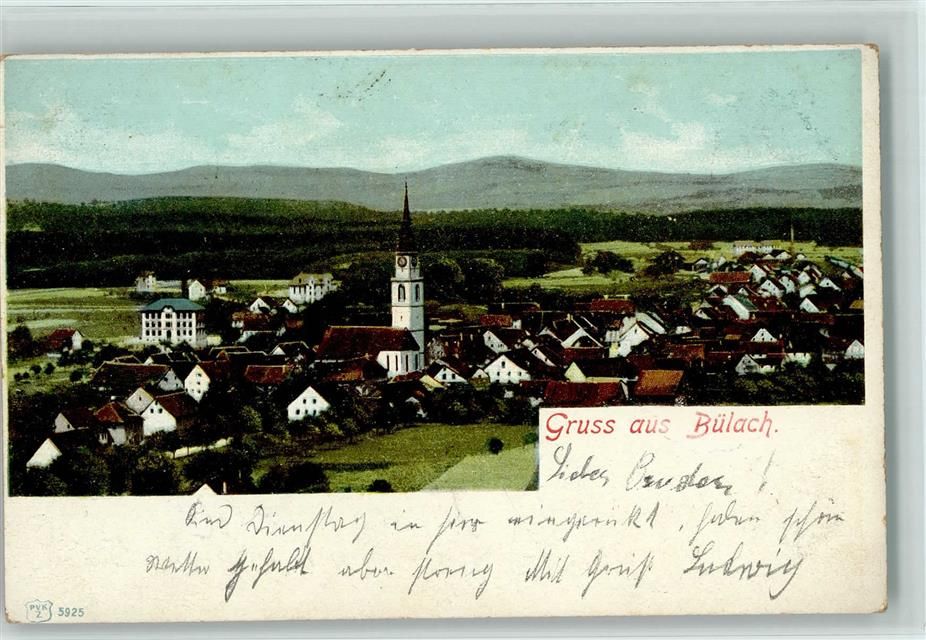 Gruss aus Bülach.
Lieber Bruder!
Sind Dienstag in hier eingerückt, haben schön
Wetter Gehabt aber streng Mit Gruß Ludwig
PVK
Z
5925